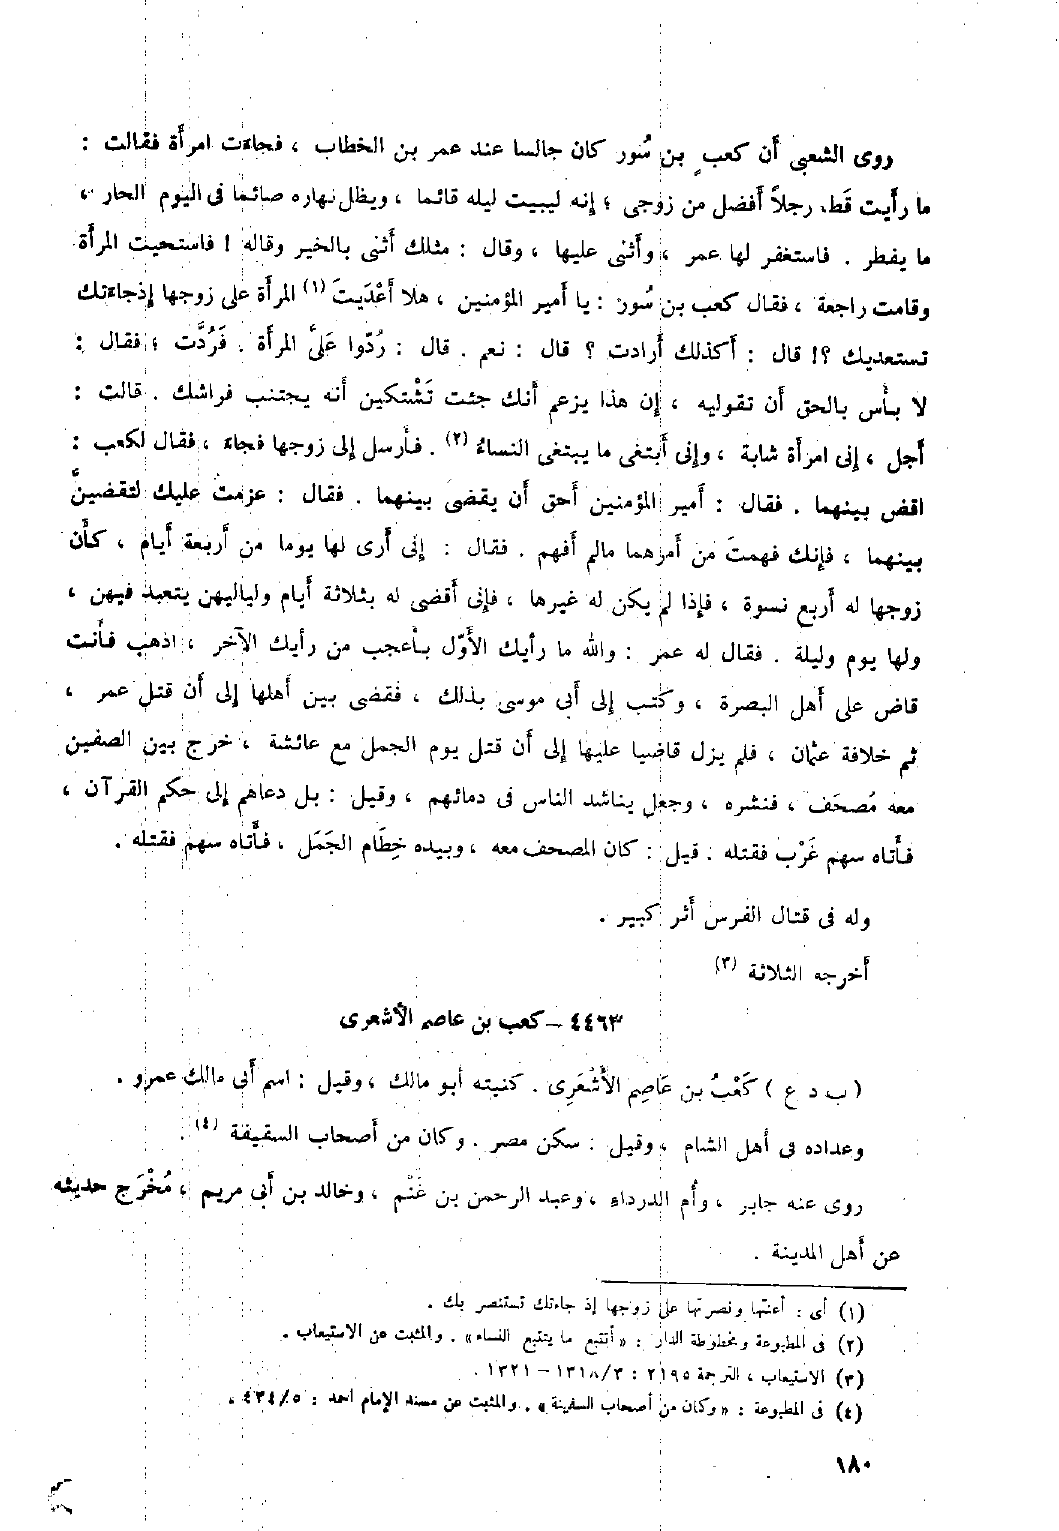 روى الشعبى أن كعب بن سُور كان جالسا عند عمر بن الخطاب ، فجاءت امرأة فقالت :
ما رأيت قط رجلاً أفضل من زوجى ؛ إنه ليبيت ليله قائما ، ويظل نهاره صائما فى اليوم الحار ،
ما يفطر . فاستغفر لها عمر ، وأثنى عليها ، وقال : مثلك أثنى بالخير وقاله ! فاستحيت المرأة
وقامت راجعة ، فقال كعب بن سُور : يا أمير المؤمنين ، هلا أَعْدَيتَ (١) المرأة على زوجها إذجاءتك
تستعديك ؟! قال : أكذلك أرادت ؟ قال : نعم . قال : رُدّوا عَلَىَّ المرأة . فَرُدَّت ؛ فقال :
لا بأس بالحق أن تقوليه ، إن هذا يزعم أنك جئت تَشْتكين أنه يجتنب فراشك . قالت :
أجل ، إنى امرأة شابة ، وإنى أبتغى ما يبتغى النساءُ (٢) . فأرسل إلى زوجها فجاءَ ، فقال لكعب :
اقض بينهما . فقال : أمير المؤمنين أحق أن يقضى بينهما . فقال : عزمتُ عليك لتقضينَّ
بينهما ، فإنك فهمتَ من أمرهما مالم أفهم . فقال : إنى أرى لها يوما من أربعة أيام ، كأن
زوجها له أربع نسوة ، فإذا لم يكن له غيرها ، فإنى أقضى له بثلاثة أيام ولياليهن يتعبد فيهن ،
ولها يوم وليلة . فقال له عمر : والله ما رأيك الأوّل بأعجب من رأيك الآخر ، اذهب فأنت
قاض على أهل البصرة ، وكتب إلى أبى موسى بذلك ، فقضى بين أهلها إلى أن قتل عمر ،
ثم خلافة عثمان ، فلم يزل قاضيا عليها إلى أن قتل يوم الجمل مع عائشة ، خرج بين الصفين
معه مُصحَف ، فنشره ، وجعل يناشد الناس فى دمائهم ، وقيل : بل دعاهم إلى حكم القرآن ،
فأتاه سهم غَرْب فقتله . قيل : كان المصحف معه ، وبيده خِطَام الجَمَل ، فأتاه سهم فقتله .
وله فى قتال الفرس أثر كبير .
أخرجه الثلاثة (٣)
٤٤٦٣ – كعب بن عاصم الأشعرى
( ب د ع ) كَعْبُ بن عَاصِم الأَشْعَرِى . كنيته أبو مالك ، وقيل : اسم أبى مالك عمرو .
وعداده فى أهل الشام ، وقيل : سكن مصر . وكان من أصحاب السقيفة (٤) .
روى عنه جابر ، وأم الدرداء ، وعبد الرحمن بن غَنْم ، وخالد بن أبى مريم ، مُخْرَج حديثه
عن أهل المدينة .
(١) أى : أعنتها ونصرتها على زوجها إذ جاءتك تستنصر بك .
(٢) فى المطبوعة ومخطوطة الدار : « أتتبع ما يتتبع النساء» . والمثبت عن الاستيعاب .
(٣) الاستيعاب ، الترجمة ٢١٩٥ : ١٣١٨/٣ – ١٣٢١ .
(٤) فى المطبوعة : « وكان من أصحاب السفينة » . والمثبت عن مسند الإمام أحمد : ٤٣٤/٥ .
١٨٠